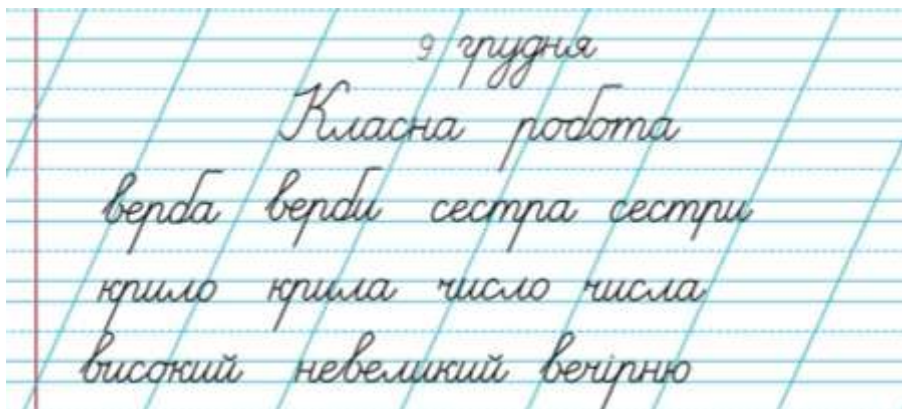 9 грудня
Класна робота
верба верби сестра сестри
крило крила число числа
високий невеликий вечірню